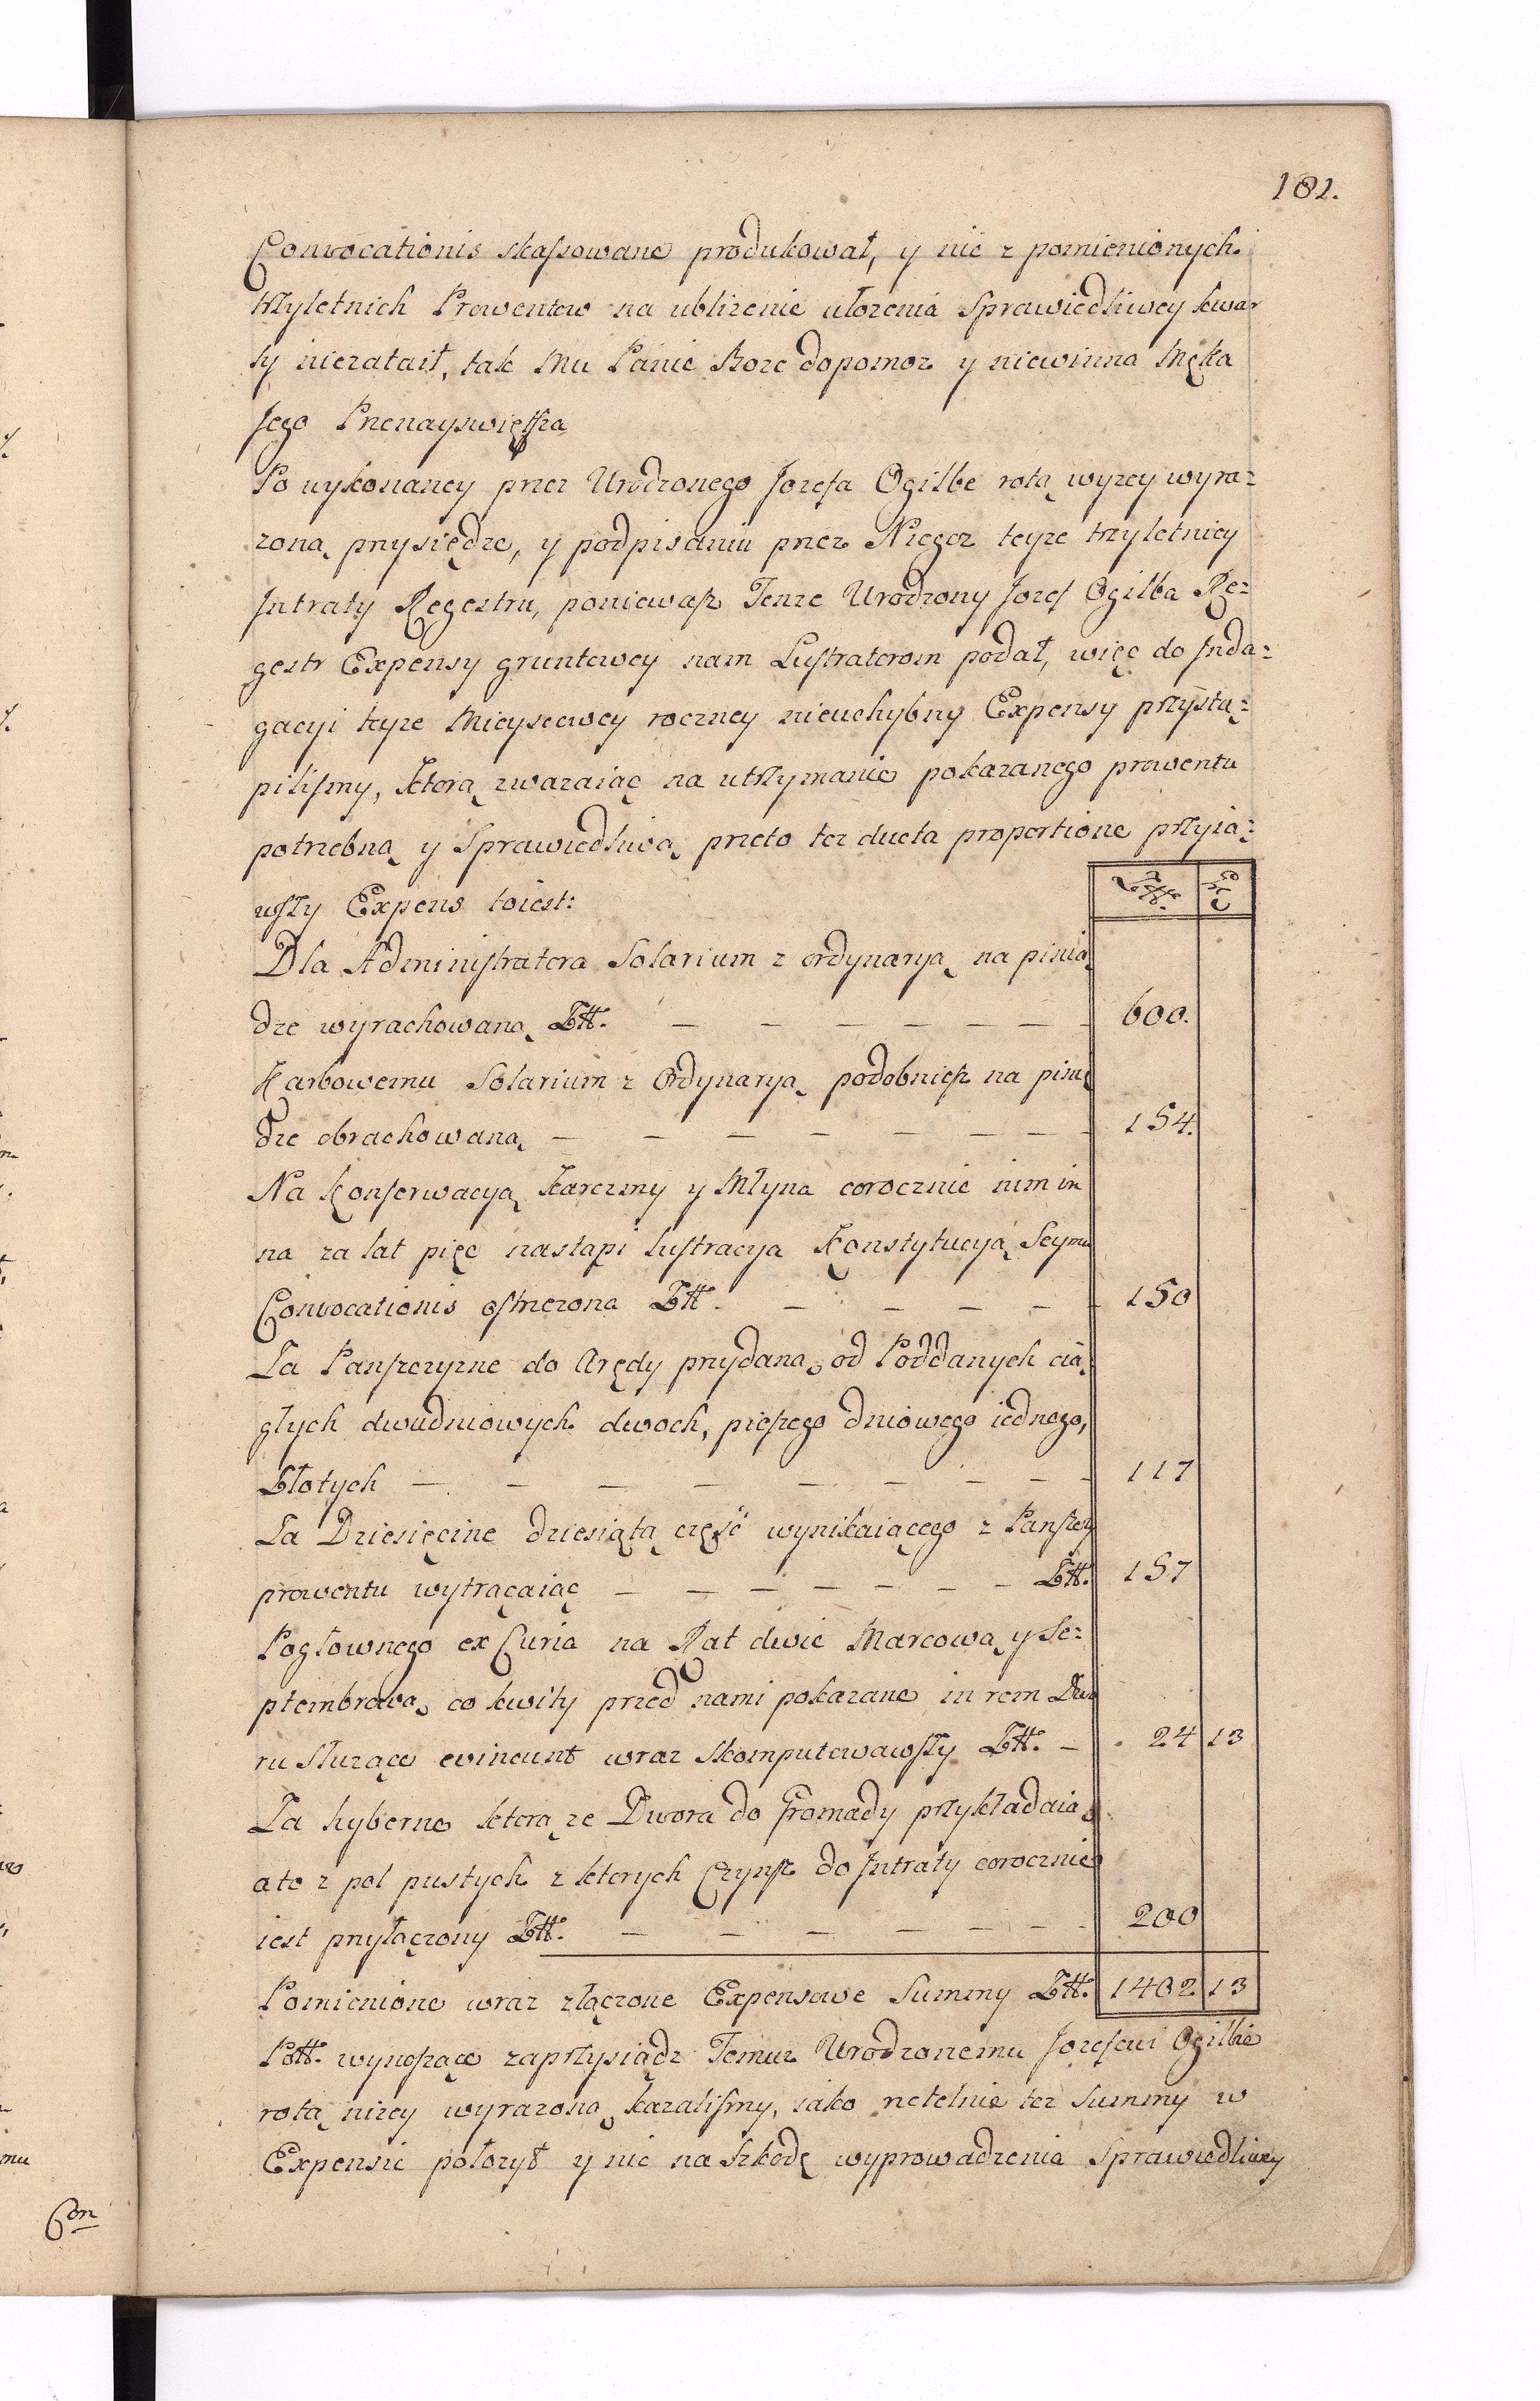 181.
Convocationis skassowane produkował, y nic z pomienionych
trzyletnich Prowentow na ubliżenie ułożenia Sprawiedliwey kwar
ty niezataił, tak Mu Panie Boże dopomoz y niewinna Męka
Jego Przenayswiętsza
Po wykonaney przez Urodzonego Jozefa Ogilbe rotą wyżey wyra=
żoną przysiędze, y podpisaniu przez Niegoz teyże trzyletniey
Jntraty Regestru, poniewasz Tenże Urodzony Jozef Ogilba Re=
gestr Expensy gruntowey nam Lustratorom podał, więc do Jnda=
gacyi teyże Mieyscowey roczney nieuchybny Expensy przystą=
pilismy, ktorą zwazaiąc na utrzymanie pokazanego prowentu
potrzebną y Sprawiedliwą, przeto też ducta proportione przyią=
wszy Expens toiest:
Dla Administratora Solarium z ordynaryą na pinią
dze wyrachowaną Ztt. — — — — — — 600.
Karbowemu Solarium z Ordynaryą podobniesz na pinię
dze obrachowaną — — — — — — — 154.
Na Konserwacyą Karczmy y Młyna corocznie nim in
na za lat pięc nastąpi lustracya Konstytucyą Seymu
Convocationis ostrzezona Ztt. — — — — 150
Za Panszczyzne do Arędy przydaną od Poddanych cią=
głych dwudniowych dwoch, pieszego dniowego iednego,
Złotych — — — — — — — — 117
Za Dziesięcine dziesiątą część wynikaiącego z Panszcz
prowentu wytrącaiąc — — — — — — Ztt. 157
Pogłownego ex Curia na Rat dwie Marcową y Se=
ptembrową, co kwity przed nami pokazane in rem Dwo
ru służące evincunt wraz skomputowawszy Ztt. — 24 13
Za hyberne ktorą ze Dwora do Gromady przykładaią
a to z pol pustych z ktorych Czynsz do Jntraty corocznie
iest przyłączony Ztt. — — — — — — 200
Pomienione wraz złączone Expensowe Summy Ztt. 1402 13
Ptt. wynoszące zaprzysiądz Temuz Urodzonemu Jozefowi Ogilbie
rotą niżey wyrazoną kazalismy, iako rzetelnie też Summy w
Expensie położył y nic na Szkodę wyprowadzenia Sprawiedliwey
6on